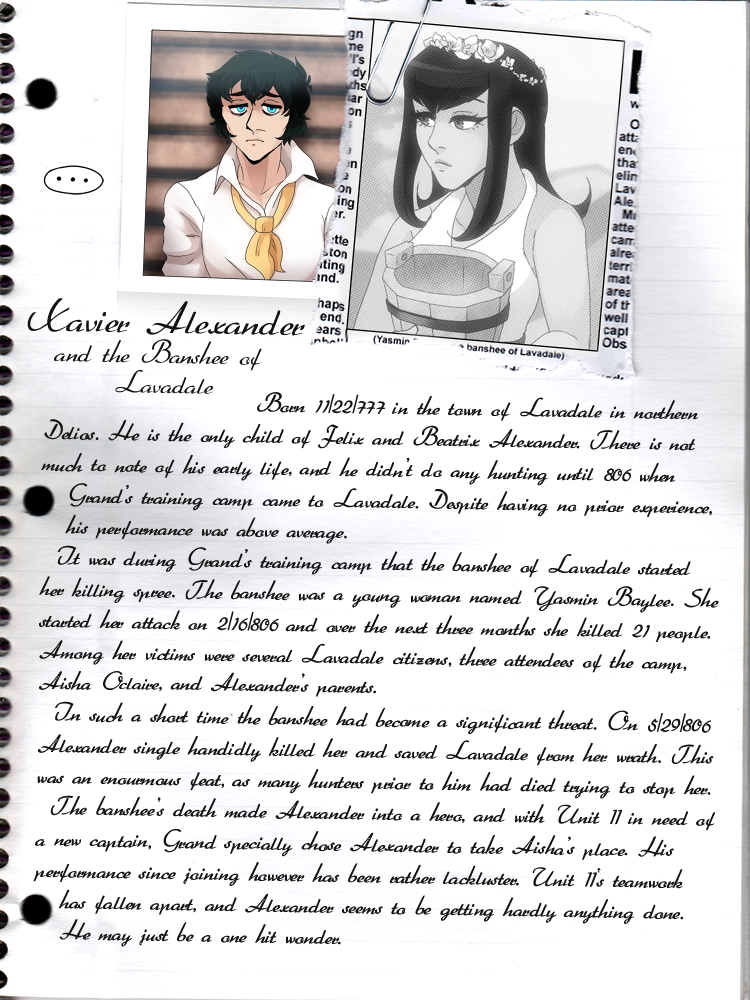 gn
me
l's
dy
ths
ar
on
s
e
n
on
ing
er.
ette
ston
iting
and.
haps
end,
ears
w
O
atta
en
tha
elin
Lav
Ale
M
atte
cam
alre
terri
mat
area
of th
well
capt
Obs
...
(Yasmin banshee of Lavadale)
Xavier Alexander
and the Banshee of
Lavadale
Born 11/22/777 in the town of Lavadale in northern
Delios. He is the only child of Felix and Beatrix Alexander. There is not
much to note of his early life, and he didn't do any hunting until 806 when
Grand's training camp came to Lavadale. Despite having no prior experience,
his performance was above average.
It was during Grand's training camp that the banshee of Lavadale started
her killing spree. The banshee was a young woman named Yasmin Baylee. She
started her attack on 2/16/806 and over the next three months she killed 21 people.
Among her victims were several Lavadale citizens, three attendees of the camp,
Aisha Oclaire, and Alexander's parents.
In such a short time the banshee had become a significant threat. On 5/29/806
Alexander single handidly killed her and saved Lavadale from her wrath. This
was an enourmous feat, as many hunters prior to him had died trying to stop her.
The banshee's death made Alexander into a hero, and with Unit 11 in need of
a new captain, Grand specially chose Alexander to take Aisha's place. His
performance since joining however has been rather lackluster. Unit 11's teamwork
has fallen apart, and Alexander seems to be getting hardly anything done.
He may just be a one hit wonder.